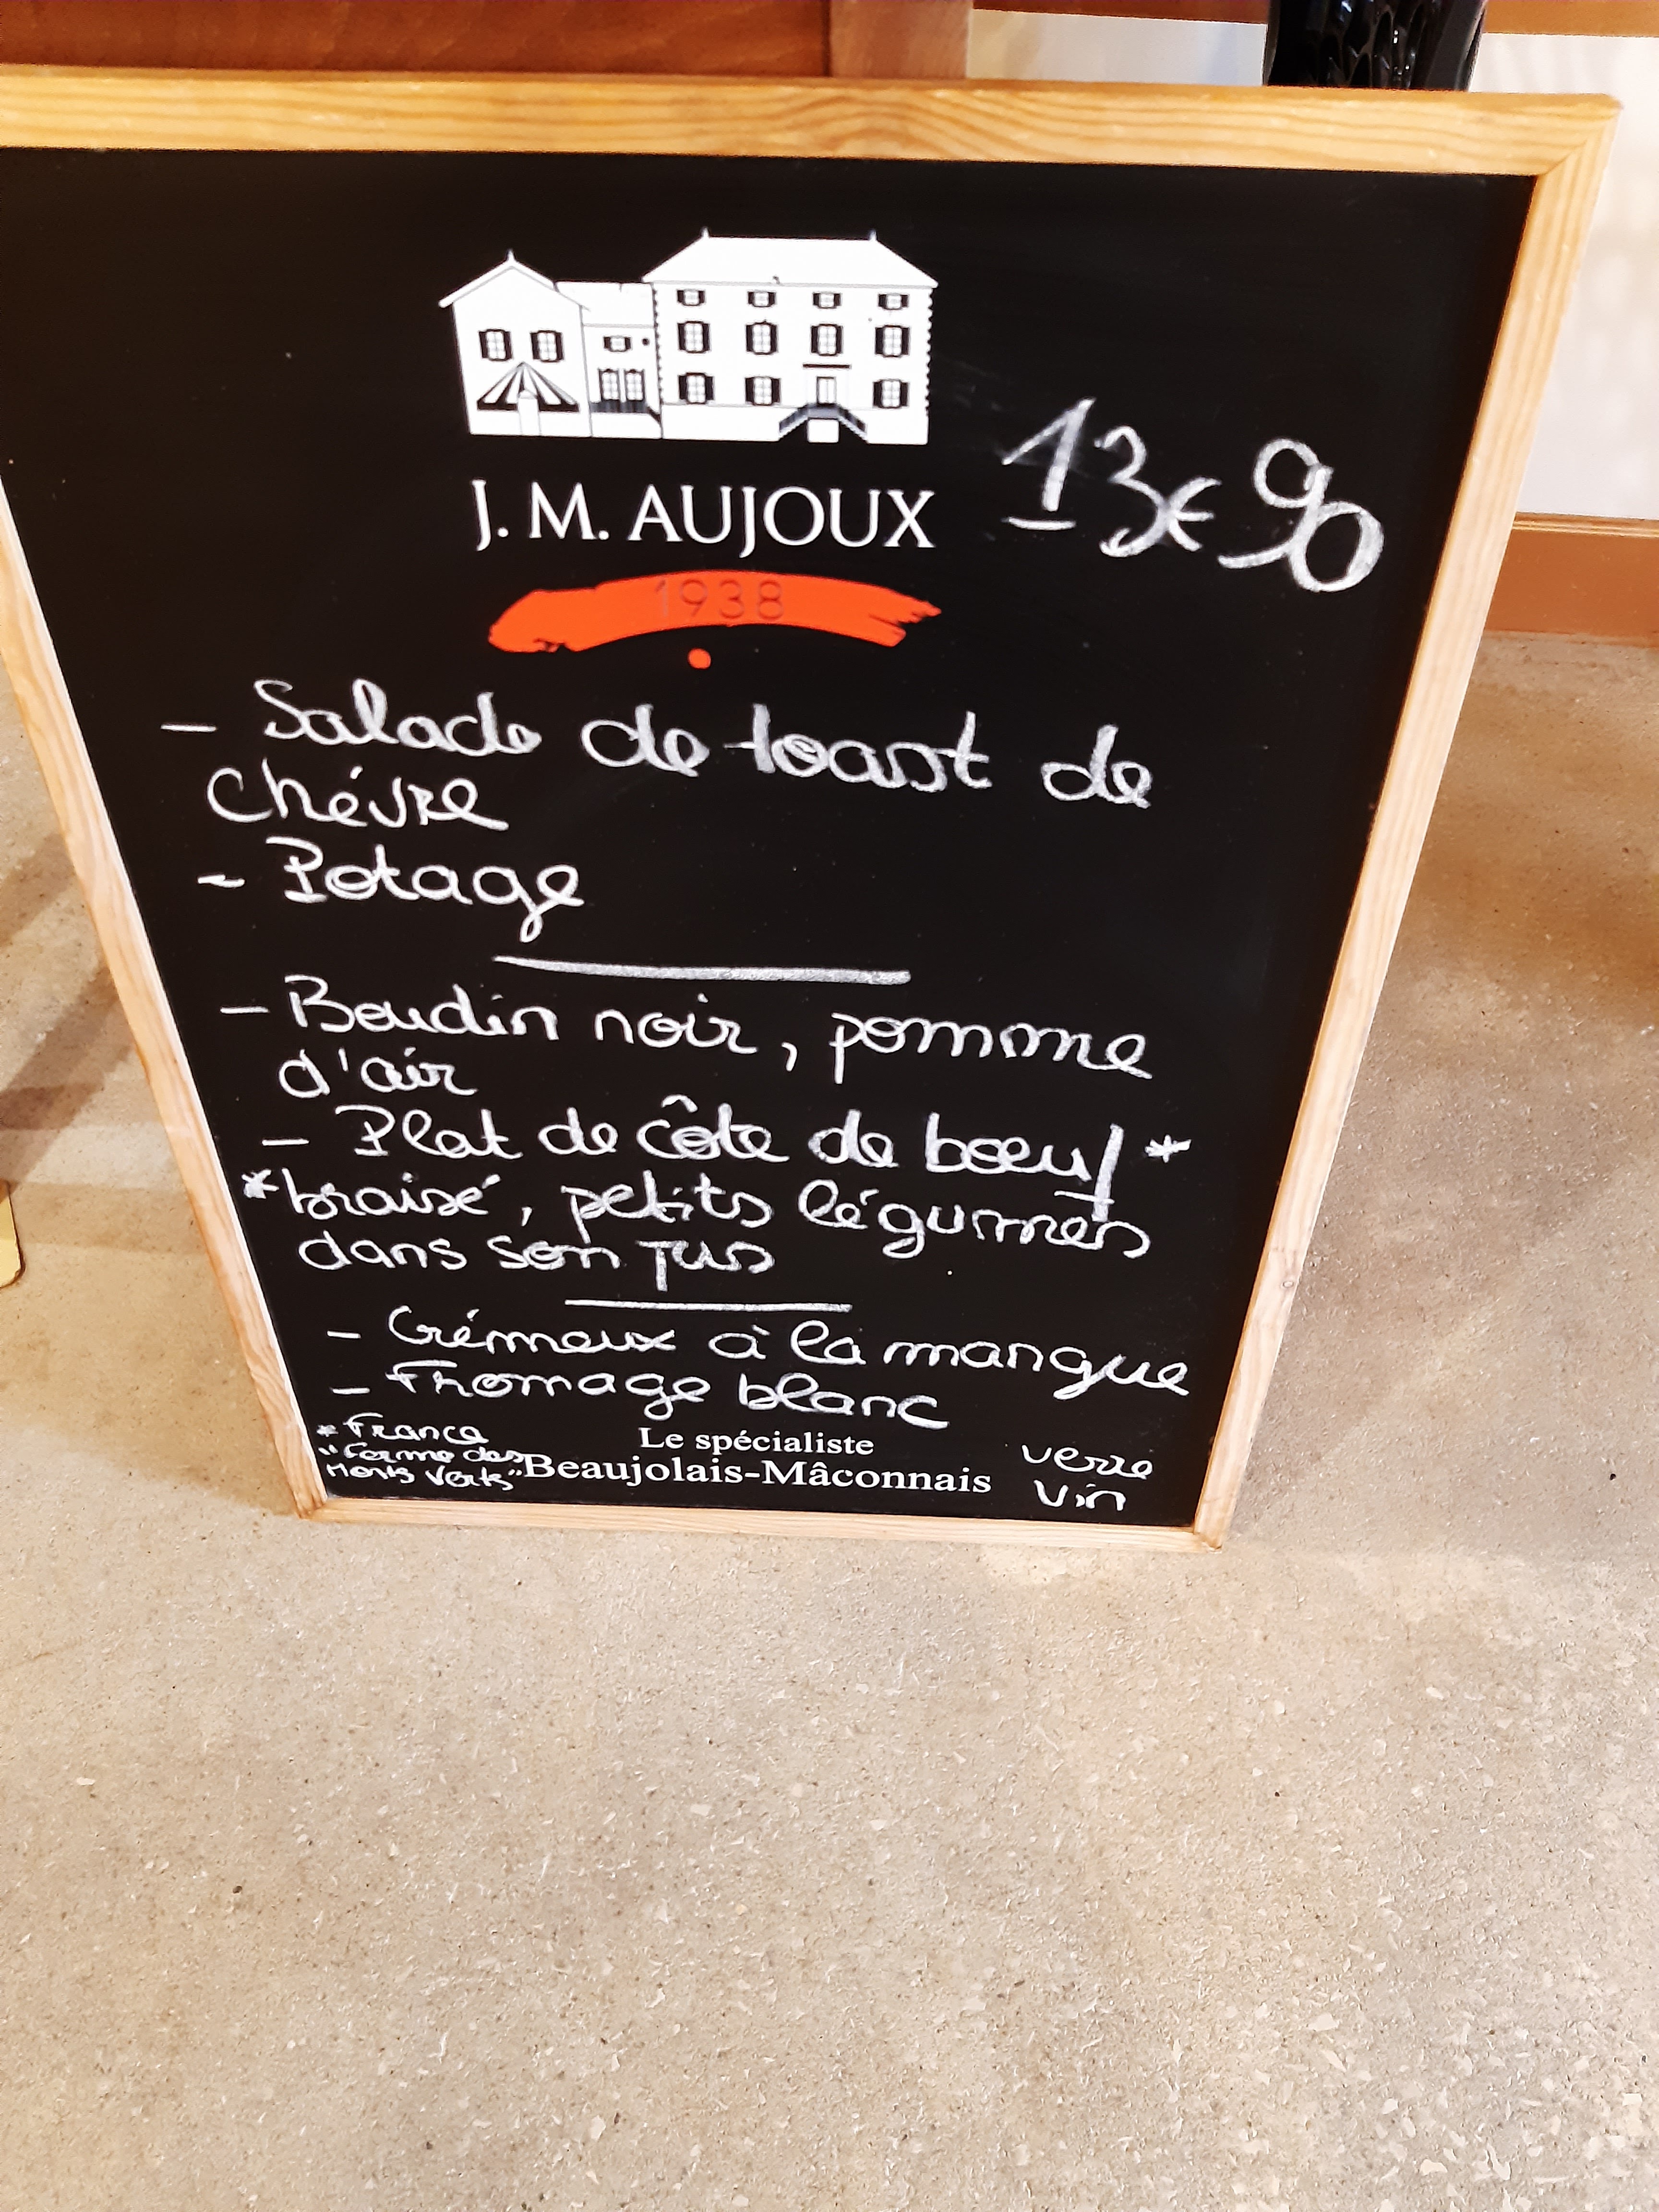 J. M. AUJOUX
13€90
1938
- Salade de toast de
Chévre
- Potage
- Boudin noir, pomme
d'air
- Plat de côte de bœuf *
*braisé, petits légumes
dans son jus
- Crémeux à la mangue
- Fromage blanc
* France
"Ferme des
Monts Verts"
Le spécialiste
Beaujolais-Mâconnais
verre
vin